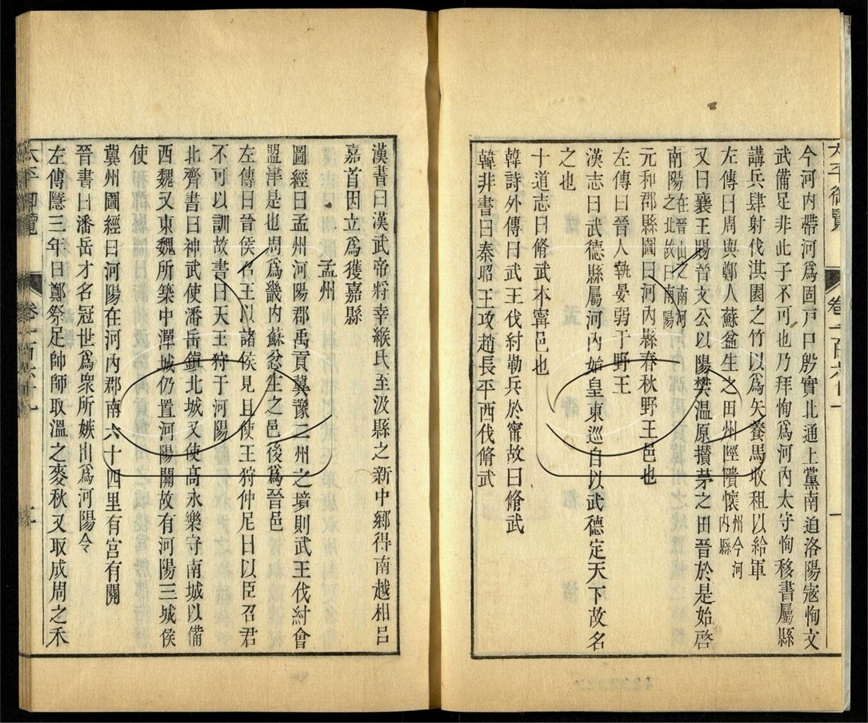 今河內帶河爲固戸口殷實北通上黨南迫洛陽寇恂文
武備足非此子不可也乃拜恂爲河內太守恂移書屬縣
講兵肆射伐淇園之竹以爲矢養馬收租以給軍
左傳曰周與鄭人蘇忿生之田州陘隤懷州今河內縣
又曰襄王賜晉文公以陽樊溫原攅茅之田晉於是始啓
南陽在晉山之南河之北故曰南陽
元和郡縣圖曰河內縣春秋野王邑也
左傳曰晉人執晏弱于野王
漢志曰武德縣屬河內始皇東巡自以武德定天下故名
之也
十道志曰脩武本寗邑也
韓詩外傳曰武王伐紂勒兵於甯故曰脩武
韓非書曰秦昭王攻趙長平西伐脩武
太平御覽
卷一百六十一
漢書曰漢武帝將幸緱氏至汲縣之新中鄉得南越相呂
嘉首因立爲獲嘉縣
孟州
圖經曰孟州河陽郡禹貢冀豫二州之境則武王伐紂會
盟津是也周爲畿內蘇忿生之邑後爲晉邑
左傳曰晉侯召王以諸侯見且使王狩仲尼曰以臣召君
不可以訓故書曰天王狩于河陽
北齊書曰神武使潘岳鎮北城又使高永樂守南城以備
西魏又東魏所築中潬城仍置河陽關故有河陽三城侯
使
冀州圖經曰河陽在河內郡南六十四里有宮有關
晉書曰潘岳才名冠世爲衆所嫉出爲河陽令
左傳隱三年曰鄭祭足帥師取溫之麥秋又取成周之禾
太平御覽